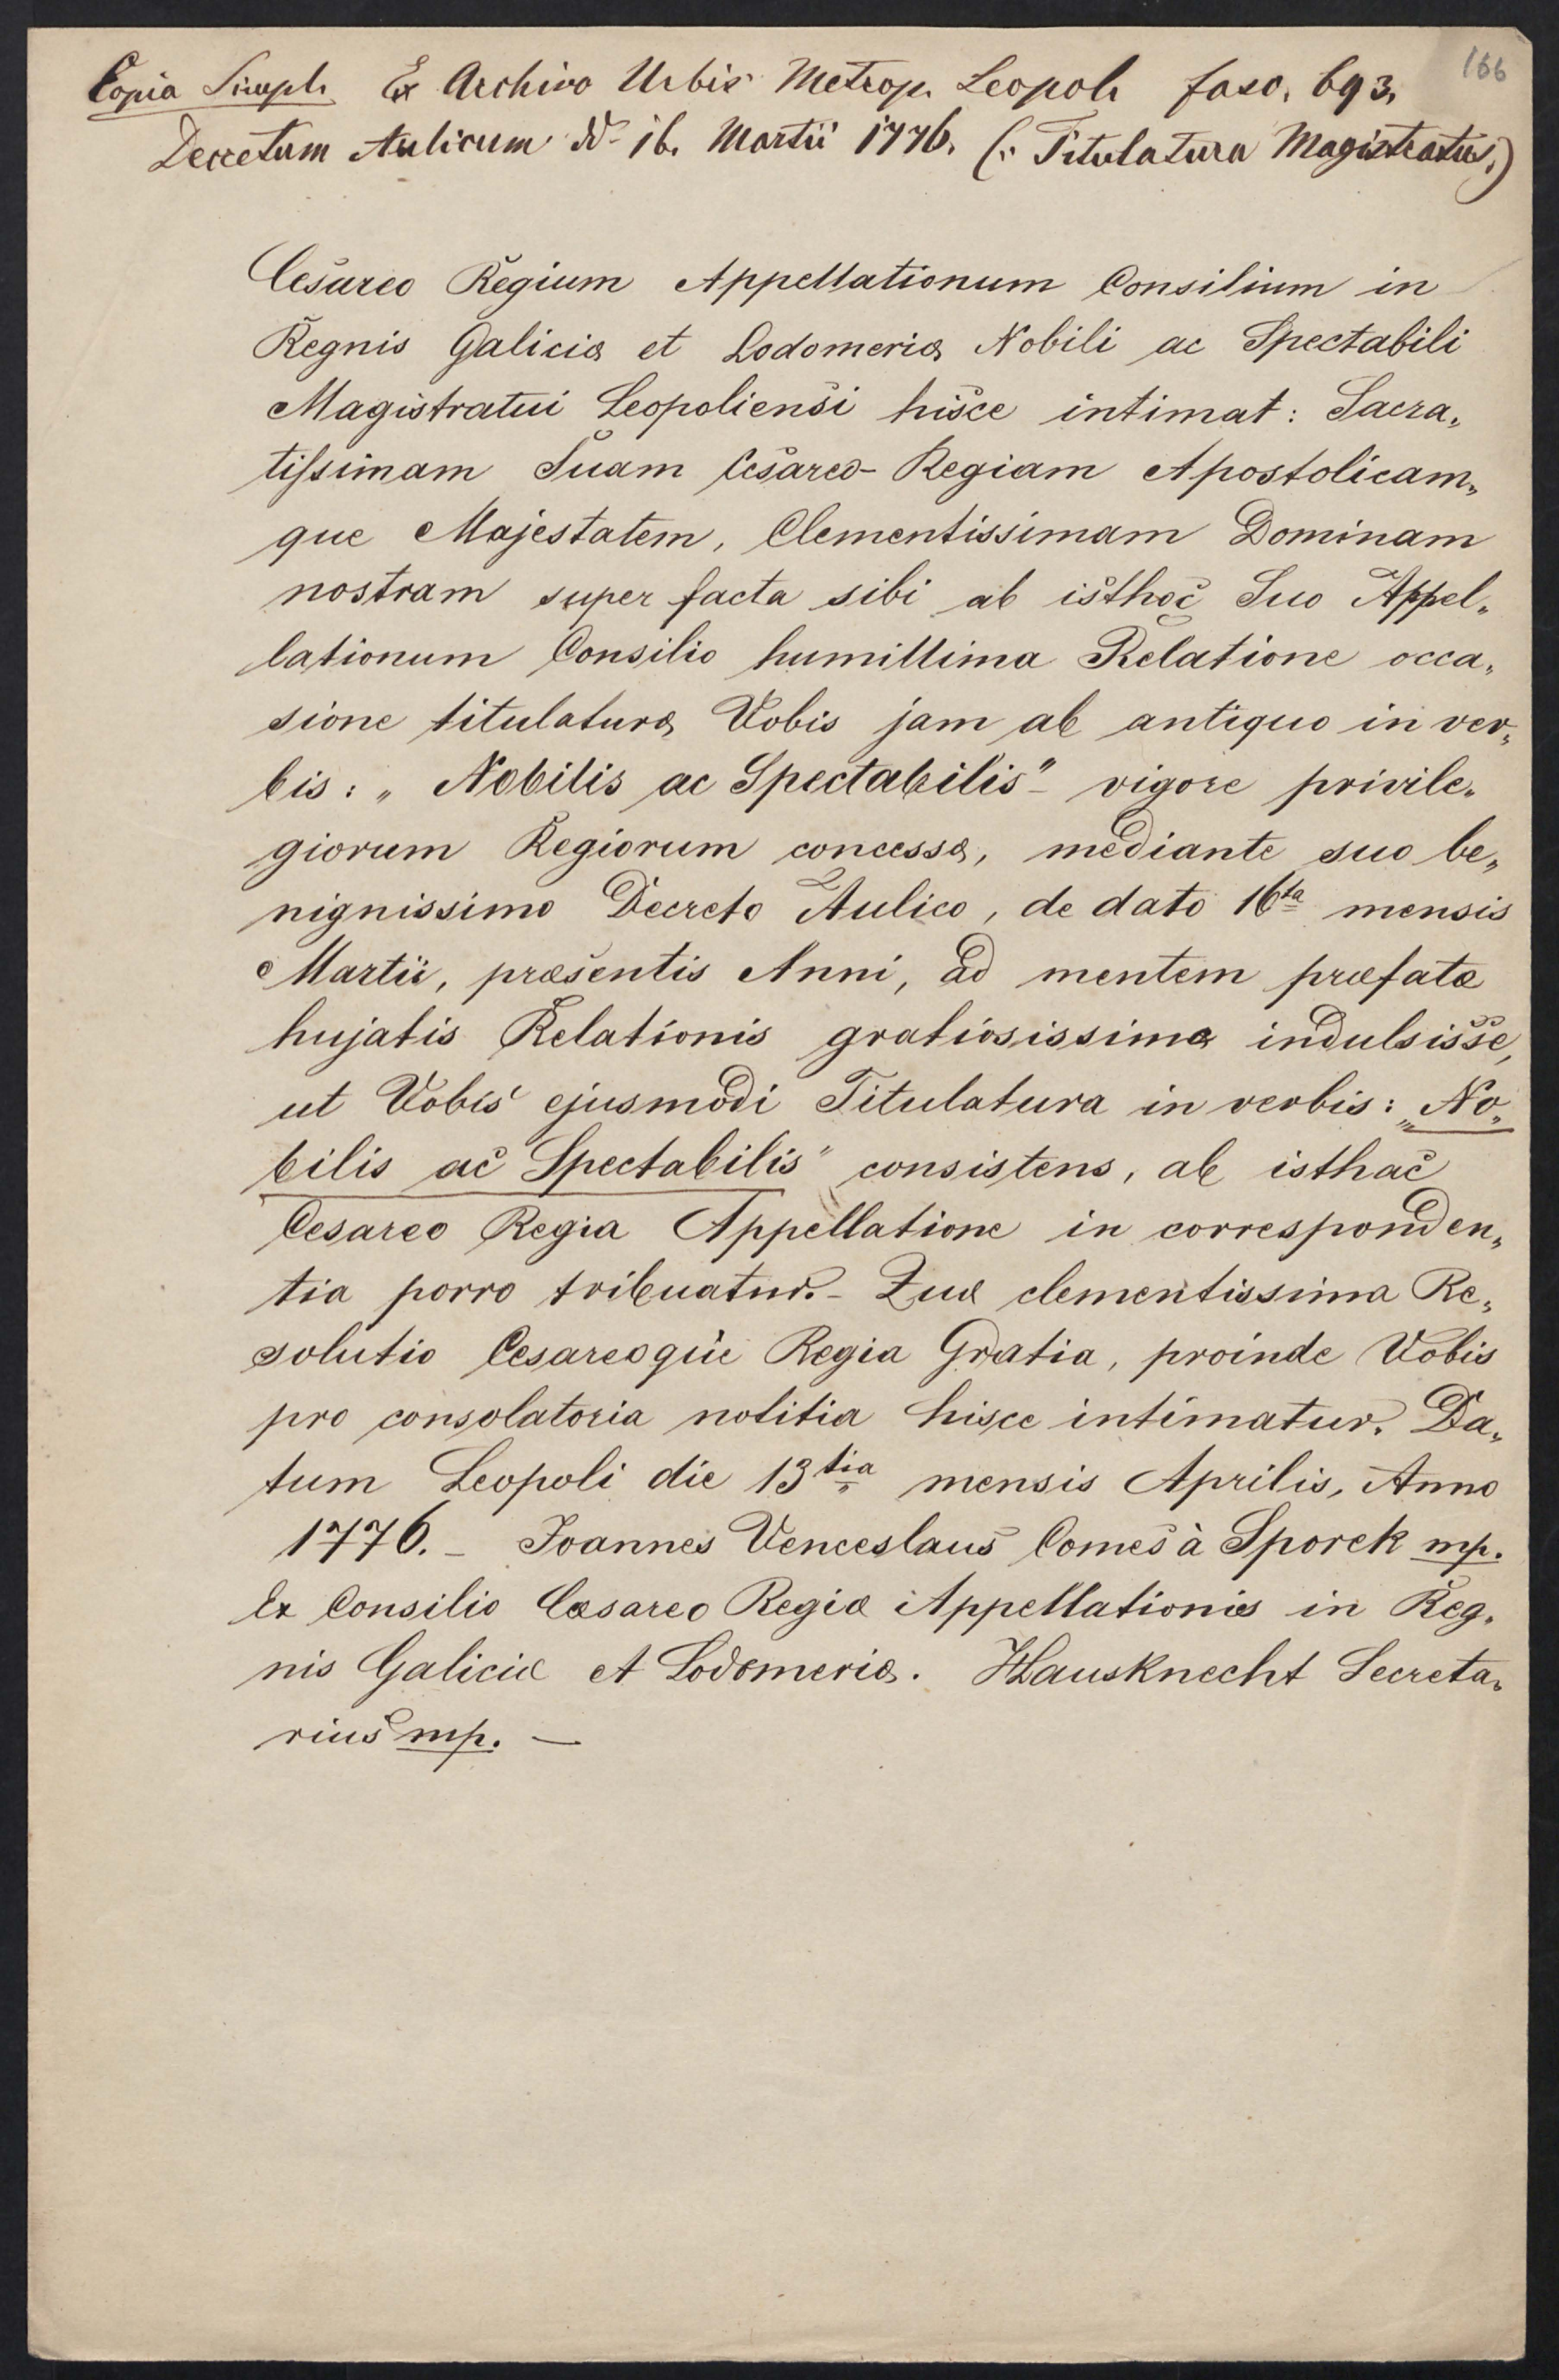 166
Copia Simpl. Ex Archivo Urbis Metrop. Leopol. fasc. 693.
Decretum Aulicum dd. 16. Martii 1776. (: Titulatura Magistratus.)
Cesareo Regium Appellationum Consilium in
Regnis Galiciæ et Lodomeriæ Nobili ac Spectabili
Magistratui Leopoliensi hisce intimat: Sacra„
tissimam Suam Cesareo-Regiam Apostolicam„
que Majestatem, Clementissimam Dominam
nostram super facta sibi ab isthoc Suo Appel„
lationum Consilio humillima Relatione occa„
sione titulaturæ Vobis jam ab antiquo in ver„
bis: „Nobilis ac Spectabilis" - vigore privile„
giorum Regiorum concessæ, mediante suo be„
nignissimo Decreto Aulico, de dato 16ta mensis
Martii, præsentis Anni, ad mentem præfatæ
hujatis Relationis gratiosissime indulsisse,
ut Vobis ejusmodi Titulatura in verbis: „No„
bilis ac Spectabilis" consistens, ab isthac
Cesareo Regia Appellatione in corresponden„
tia porro tribuatur. - Quæ clementissima Re„
solutio Cesareoque Regia Gratia, proinde Vobis
pro consolatoria notitia hisce intimatur. Da„
tum Leopoli die 13tia mensis Aprilis, Anno
1776. - Joannes Venceslaus Comes à Sporek mp.
Ex Consilio Cæsareo Regiæ Appellationis in Reg„
nis Galiciæ et Lodomeriæ. Hausknecht Secreta„
rius mp. —